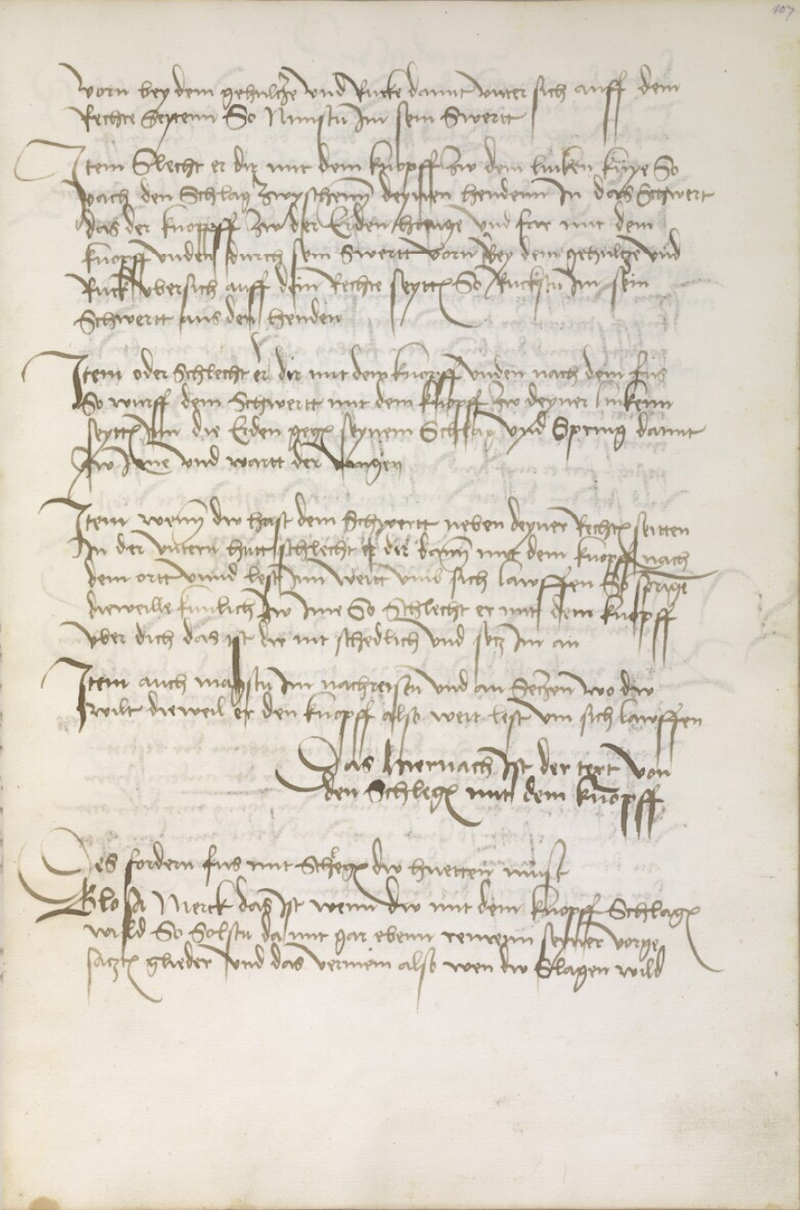 107
vorn bey dem gehultze vnd Rucke damit vnter sich auff dem
Rechte Seytenn So Nimstu Im sein Swertt
Item Slecht er dir mit dem knopff zw dem lincken knye So
vach den Schlag zwyschenn deynen hendenn In das Schwert
das der knopff zw der Erden hange vnd far mit dem
knopff vnden durch sein Swertt vorn Bey dem gehultze vnd
Ruck vbersich auff dein Rechte seyttn So Ruckstu Im sein
Schwertt aus den henden
Item oder Schlecht er dir mit dem knopff vnden nach dem fus
So wurff dem Schwertt mit dem knopff zw deyner linckenn
seyttn Inn die Erden gegn seynem Schlag vnd Spring damit
zw Ime vnd wartt der
Item wenn dw hast dem Schwertt neben deyner Rechtn seitten
In der vntern hutt schlecht er dir dann mit dem knopff nach
dem ortt vnnd lest Inn weitt vmb sich lawffen So spring
dieweille kunlich zw Ime So Schlecht er mit dem knopff
vber dich das ist dir nit schedlich vnd setz Im an
Item auch magstu Im nachreisen vnd an Setzen wo dw
wilt dieweil er den knopff also weit lest vm sich lawffen
Das hiernach Ist der text von
den Schlegn mit dem knopff
Des fordern fus mit Schlegn dw huetten must
Glosa Merck das Ist wenn dw mit dem knopff Schlagn
wild So Solstu damit gar ebenn remenn seyner vorge
satztn glieder vnd das vernim also wen dw Slagen wild